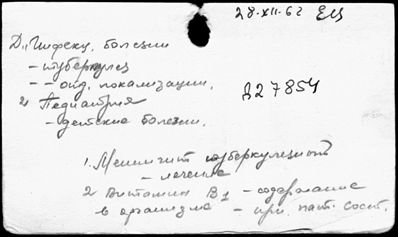 28-XII-62 ЕЦ
1. Инфекц. болезни
- туберкулез
- - отд. локализации.
Д27854
2 Педиатрия
- детские болезни.
1. Менингит туберкулезный
- лечение
2 Витамин B1 - содержание
в организме - при. пат. сост.